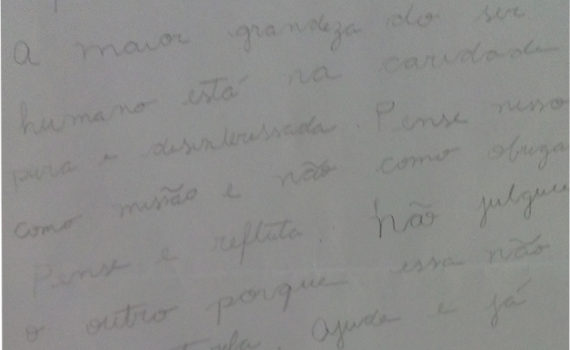 A maior grandeza do ser
humano está na caridade
pura e desinteressada. Pense nisso
como missão e não como obriga
Pense e reflita. Não julgue
o outro porque essa não
ajuda e já